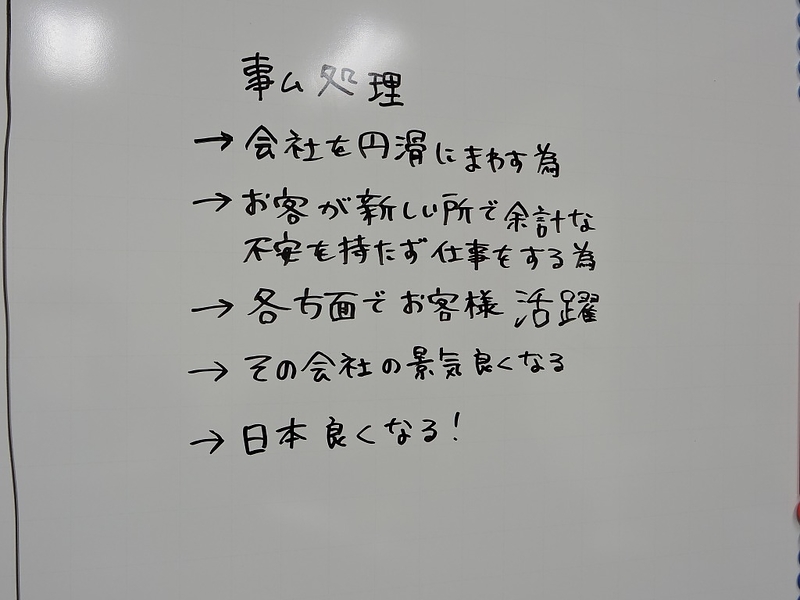 事ム処理
→会社を円滑にまわす為
→お客が新しい所で余計な
不安を持たず仕事をする為
→各方面でお客様活躍
→その会社の景気良くなる
→日本良くなる！